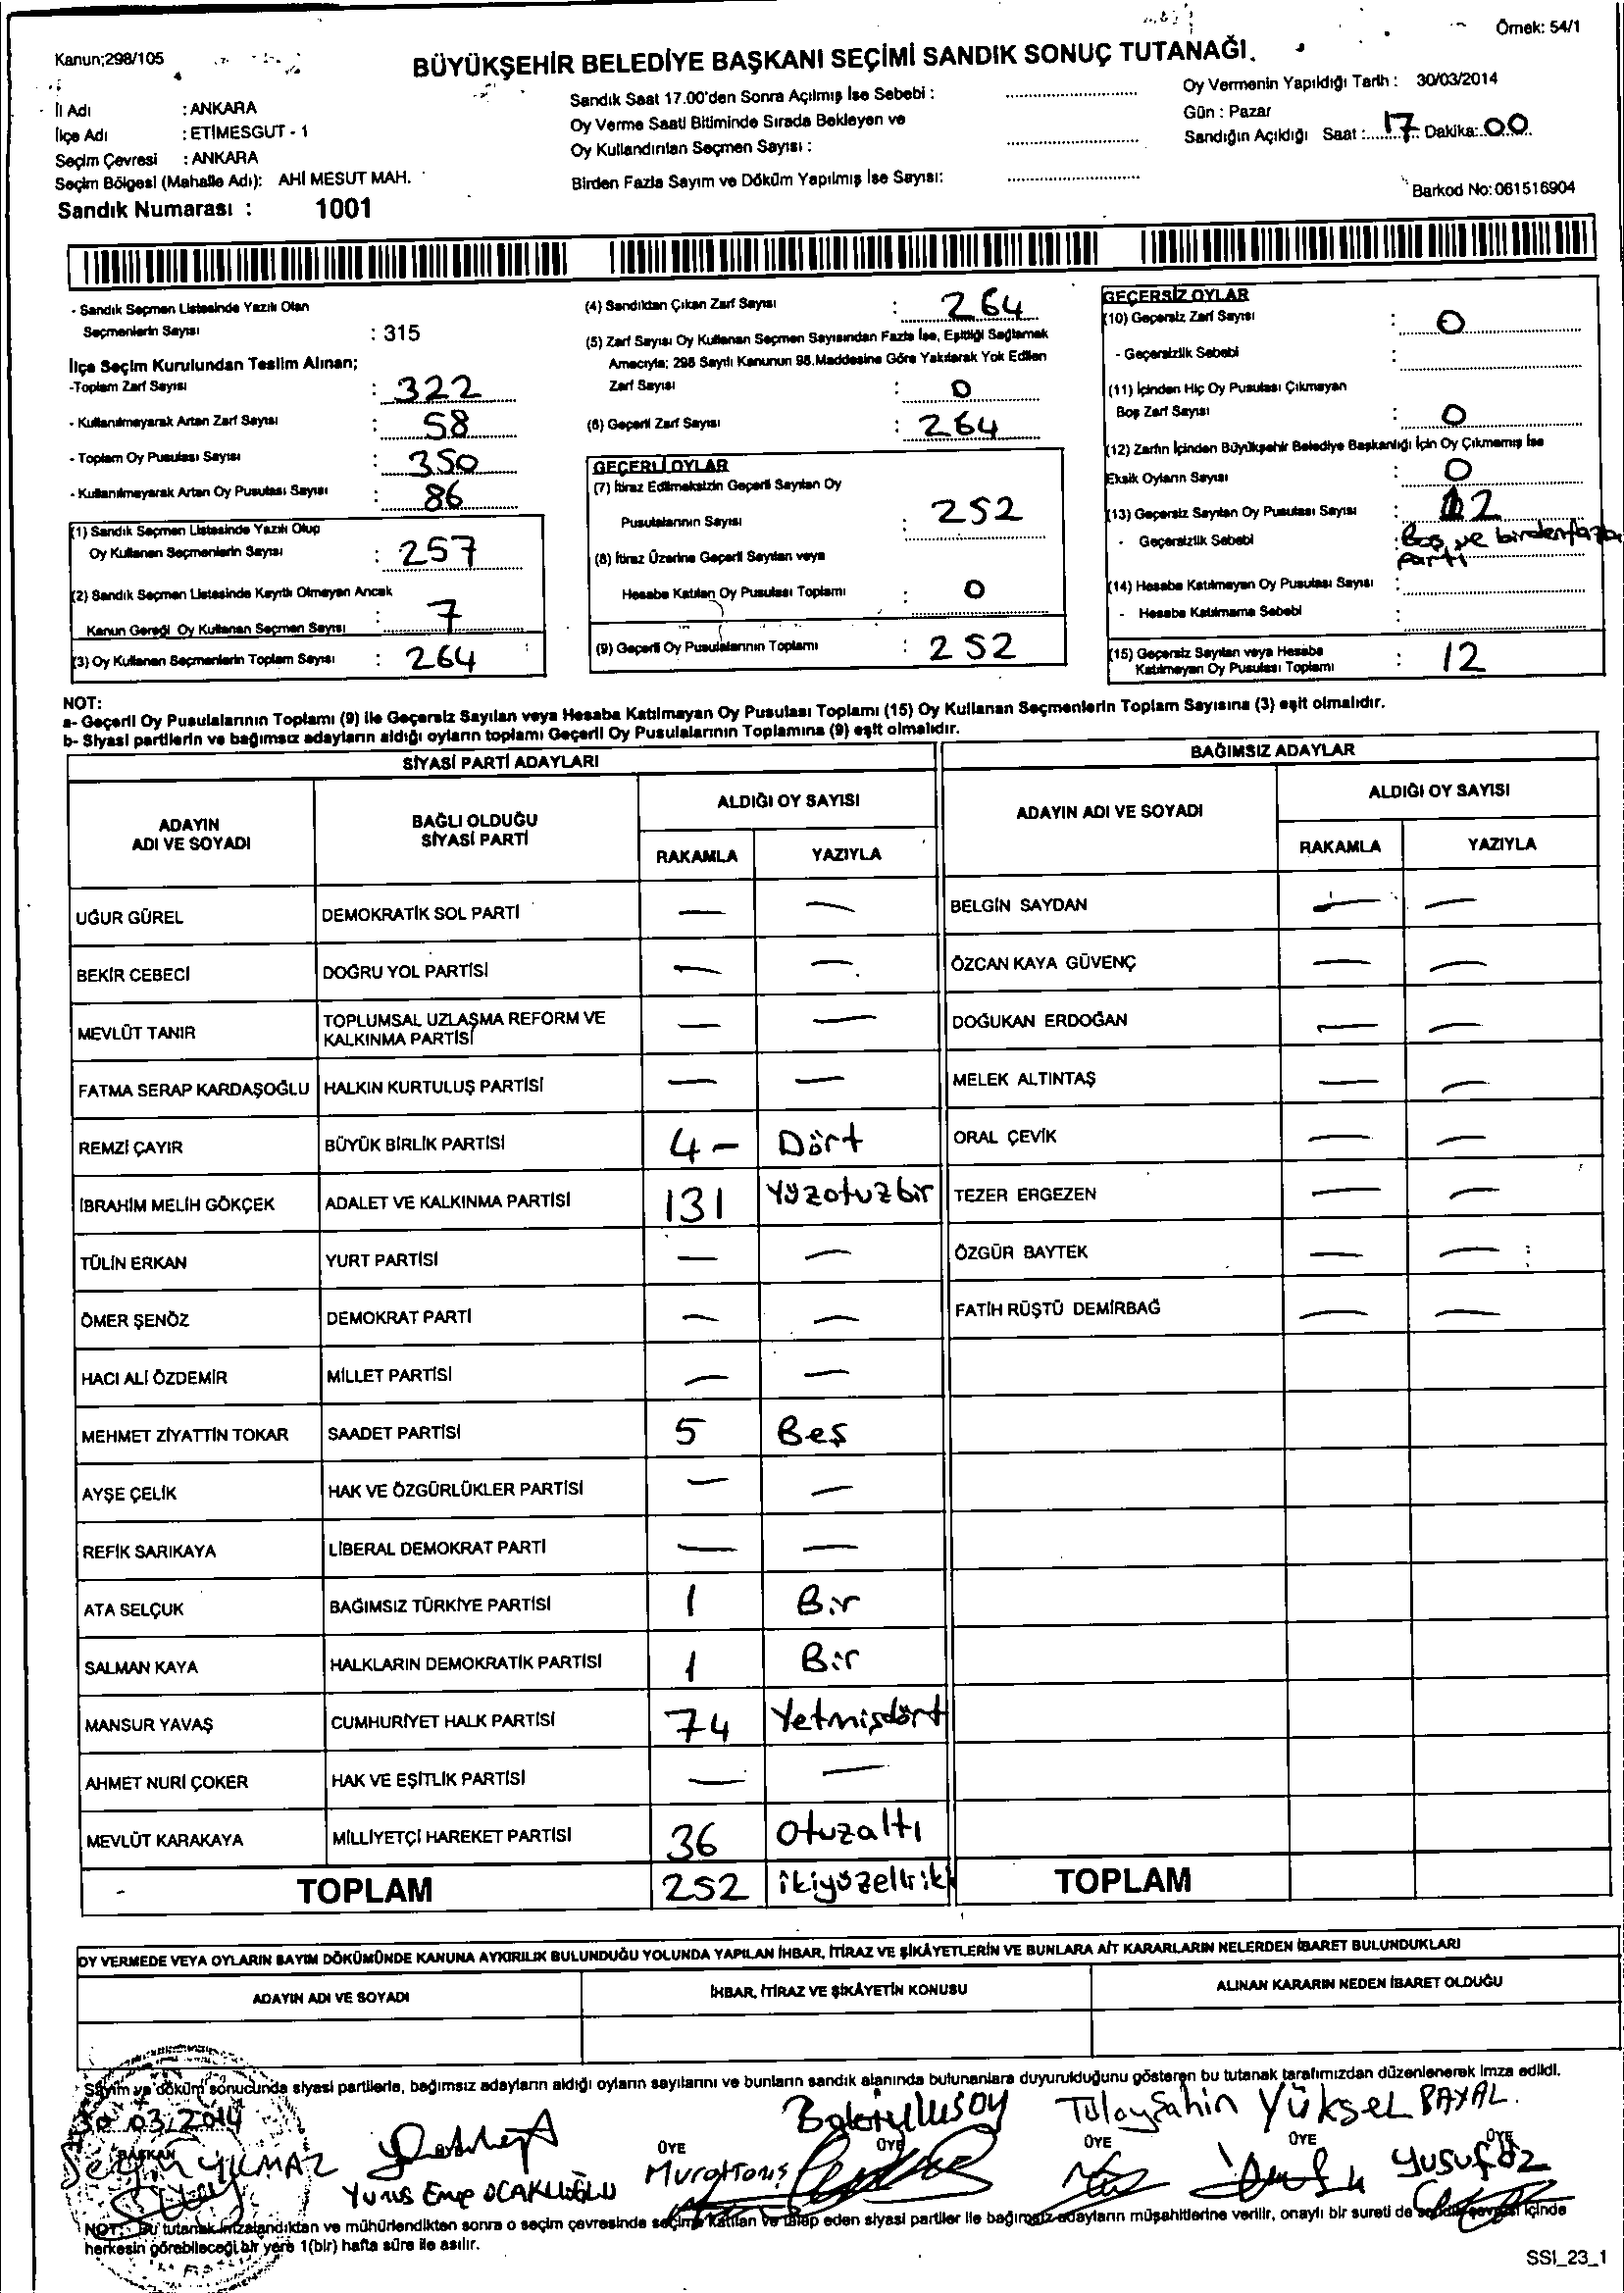 Örnek: 54/1
Kanun;298/105
BÜYÜKŞEHİR BELEDİYE BAŞKANI SEÇİMİ SANDIK SONUÇ TUTANAĞI.
İl Adı : ANKARA
İlçe Adı : ETİMESGUT - 1
Seçim Çevresi : ANKARA
Seçim Bölgesi (Mahalle Adı): AHİ MESUT MAH.
Sandık Numarası : 1001
Sandık Saat 17.00'den Sonra Açılmış İse Sebebi :
Oy Verme Saati Bitiminde Sırada Bekleyen ve
Oy Kullandırılan Seçmen Sayısı :
Birden Fazla Sayım ve Döküm Yapılmış İse Sayısı:
Oy Vermenin Yapıldığı Tarih : 30/03/2014
Gün : Pazar
Sandığın Açıldığı Saat : 17 Dakika: 00
Barkod No: 061516904
- Sandık Seçmen Listesinde Yazılı Olan
Seçmenlerin Sayısı : 315
İlçe Seçim Kurulundan Teslim Alınan;
-Toplam Zarf Sayısı : 322
- Kullanılmayarak Artan Zarf Sayısı : 58
- Toplam Oy Pusulası Sayısı : 350
- Kullanılmayarak Artan Oy Pusulası Sayısı : 86
(1) Sandık Seçmen Listesinde Yazılı Olup
Oy Kullanan Seçmenlerin Sayısı : 257
(2) Sandık Seçmen Listesinde Kayıtlı Olmayan Ancak
Kanun Gereği Oy Kullanan Seçmen Sayısı : 7
(3) Oy Kullanan Seçmenlerin Toplam Sayısı : 264
(4) Sandıktan Çıkan Zarf Sayısı : 264
(5) Zarf Sayısı Oy Kullanan Seçmen Sayısından Fazla İse, Eşitliği Sağlamak
Amacıyla; 298 Sayılı Kanunun 98.Maddesine Göre Yakılarak Yok Edilen
Zarf Sayısı : 0
(6) Geçerli Zarf Sayısı : 264
GEÇERLİ OYLAR
(7) İtiraz Edilmeksizin Geçerli Sayılan Oy
Pusulalarının Sayısı : 252
(8) İtiraz Üzerine Geçerli Sayılan veya
Hesaba Katılan Oy Pusulası Toplamı : 0
(9) Geçerli Oy Pusulalarının Toplamı : 252
GEÇERSİZ OYLAR
(10) Geçersiz Zarf Sayısı : 0
- Geçersizlik Sebebi :
(11) İçinden Hiç Oy Pusulası Çıkmayan
Boş Zarf Sayısı : 0
(12) Zarfın İçinden Büyükşehir Belediye Başkanlığı İçin Oy Çıkmamış İse
Eksik Oyların Sayısı : 0
(13) Geçersiz Sayılan Oy Pusulası Sayısı : 12
- Geçersizlik Sebebi : Boş ve birden fazla
parti
(14) Hesaba Katılmayan Oy Pusulası Sayısı :
- Hesaba Katılmama Sebebi :
(15) Geçersiz Sayılan veya Hesaba
Katılmayan Oy Pusulası Toplamı : 12
NOT:
a- Geçerli Oy Pusulalarının Toplamı (9) ile Geçersiz Sayılan veya Hesaba Katılmayan Oy Pusulası Toplamı (15) Oy Kullanan Seçmenlerin Toplam Sayısına (3) eşit olmalıdır.
b- Siyasi partilerin ve bağımsız adayların aldığı oyların toplamı Geçerli Oy Pusulalarının Toplamına (9) eşit olmalıdır.
SİYASİ PARTİ ADAYLARI
ADAYIN
ADI VE SOYADI
BAĞLI OLDUĞU
SİYASİ PARTİ
ALDIĞI OY SAYISI
RAKAMLA YAZIYLA
UĞUR GÜREL DEMOKRATİK SOL PARTİ — —
BEKİR CEBECİ DOĞRU YOL PARTİSİ — —
MEVLÜT TANIR TOPLUMSAL UZLAŞMA REFORM VE
KALKINMA PARTİSİ — —
FATMA SERAP KARDAŞOĞLU HALKIN KURTULUŞ PARTİSİ — —
REMZİ ÇAYIR BÜYÜK BİRLİK PARTİSİ 4 — Dört
İBRAHİM MELİH GÖKÇEK ADALET VE KALKINMA PARTİSİ 131 Yüzotuzbir
TÜLİN ERKAN YURT PARTİSİ — —
ÖMER ŞENÖZ DEMOKRAT PARTİ — —
HACI ALİ ÖZDEMİR MİLLET PARTİSİ — —
MEHMET ZİYATTİN TOKAR SAADET PARTİSİ 5 Beş
AYŞE ÇELİK HAK VE ÖZGÜRLÜKLER PARTİSİ — —
REFİK SARIKAYA LİBERAL DEMOKRAT PARTİ — —
ATA SELÇUK BAĞIMSIZ TÜRKİYE PARTİSİ 1 Bir
SALMAN KAYA HALKLARIN DEMOKRATİK PARTİSİ 1 Bir
MANSUR YAVAŞ CUMHURİYET HALK PARTİSİ 74 Yetmişdört
AHMET NURİ ÇOKER HAK VE EŞİTLİK PARTİSİ — —
MEVLÜT KARAKAYA MİLLİYETÇİ HAREKET PARTİSİ 36 Otuzaltı
TOPLAM 252 ikiyüzelliik
BAĞIMSIZ ADAYLAR
ADAYIN ADI VE SOYADI
ALDIĞI OY SAYISI
RAKAMLA YAZIYLA
BELGİN SAYDAN — —
ÖZCAN KAYA GÜVENÇ — —
DOĞUKAN ERDOĞAN — —
MELEK ALTINTAŞ — —
ORAL ÇEVİK — —
TEZER ERGEZEN — —
ÖZGÜR BAYTEK — —
FATİH RÜŞTÜ DEMİRBAĞ — —
TOPLAM
OY VERMEDE VEYA OYLARIN SAYIM DÖKÜMÜNDE KANUNA AYKIRILIK BULUNDUĞU YOLUNDA YAPILAN İHBAR, İTİRAZ VE ŞİKÂYETLERİN VE BUNLARA AİT KARARLARIN NELERDEN İBARET BULUNDUKLARI
ADAYIN ADI VE SOYADI İHBAR, İTİRAZ VE ŞİKÂYETİN KONUSU ALINAN KARARIN NEDEN İBARET OLDUĞU
Sayım ve döküm sonucunda siyasi partilerle, bağımsız adayların aldığı oyların sayılarını ve bunların sandık alanında bulunanlara duyurulduğunu gösteren bu tutanak tarafımızdan düzenlenerek imza edildi.
30 03/2014
Tülay Şahin Yüksel BAYAL
BAŞKAN ÜYE ÜYE ÜYE ÜYE ÜYE
YILMAZ
Yunus Emre OCAKLIOĞLU
Yusuf Öz
NOT: Bu tutanak imzalandıktan ve mühürlendikten sonra o seçim çevresinde seçime katılan ve talep eden siyasi partiler ile bağımsız adayların müşahitlerine verilir, onaylı bir sureti de sandık çevresi içinde
herkesin görebileceği bir yere 1(bir) hafta süre ile asılır.
SSI_23_1